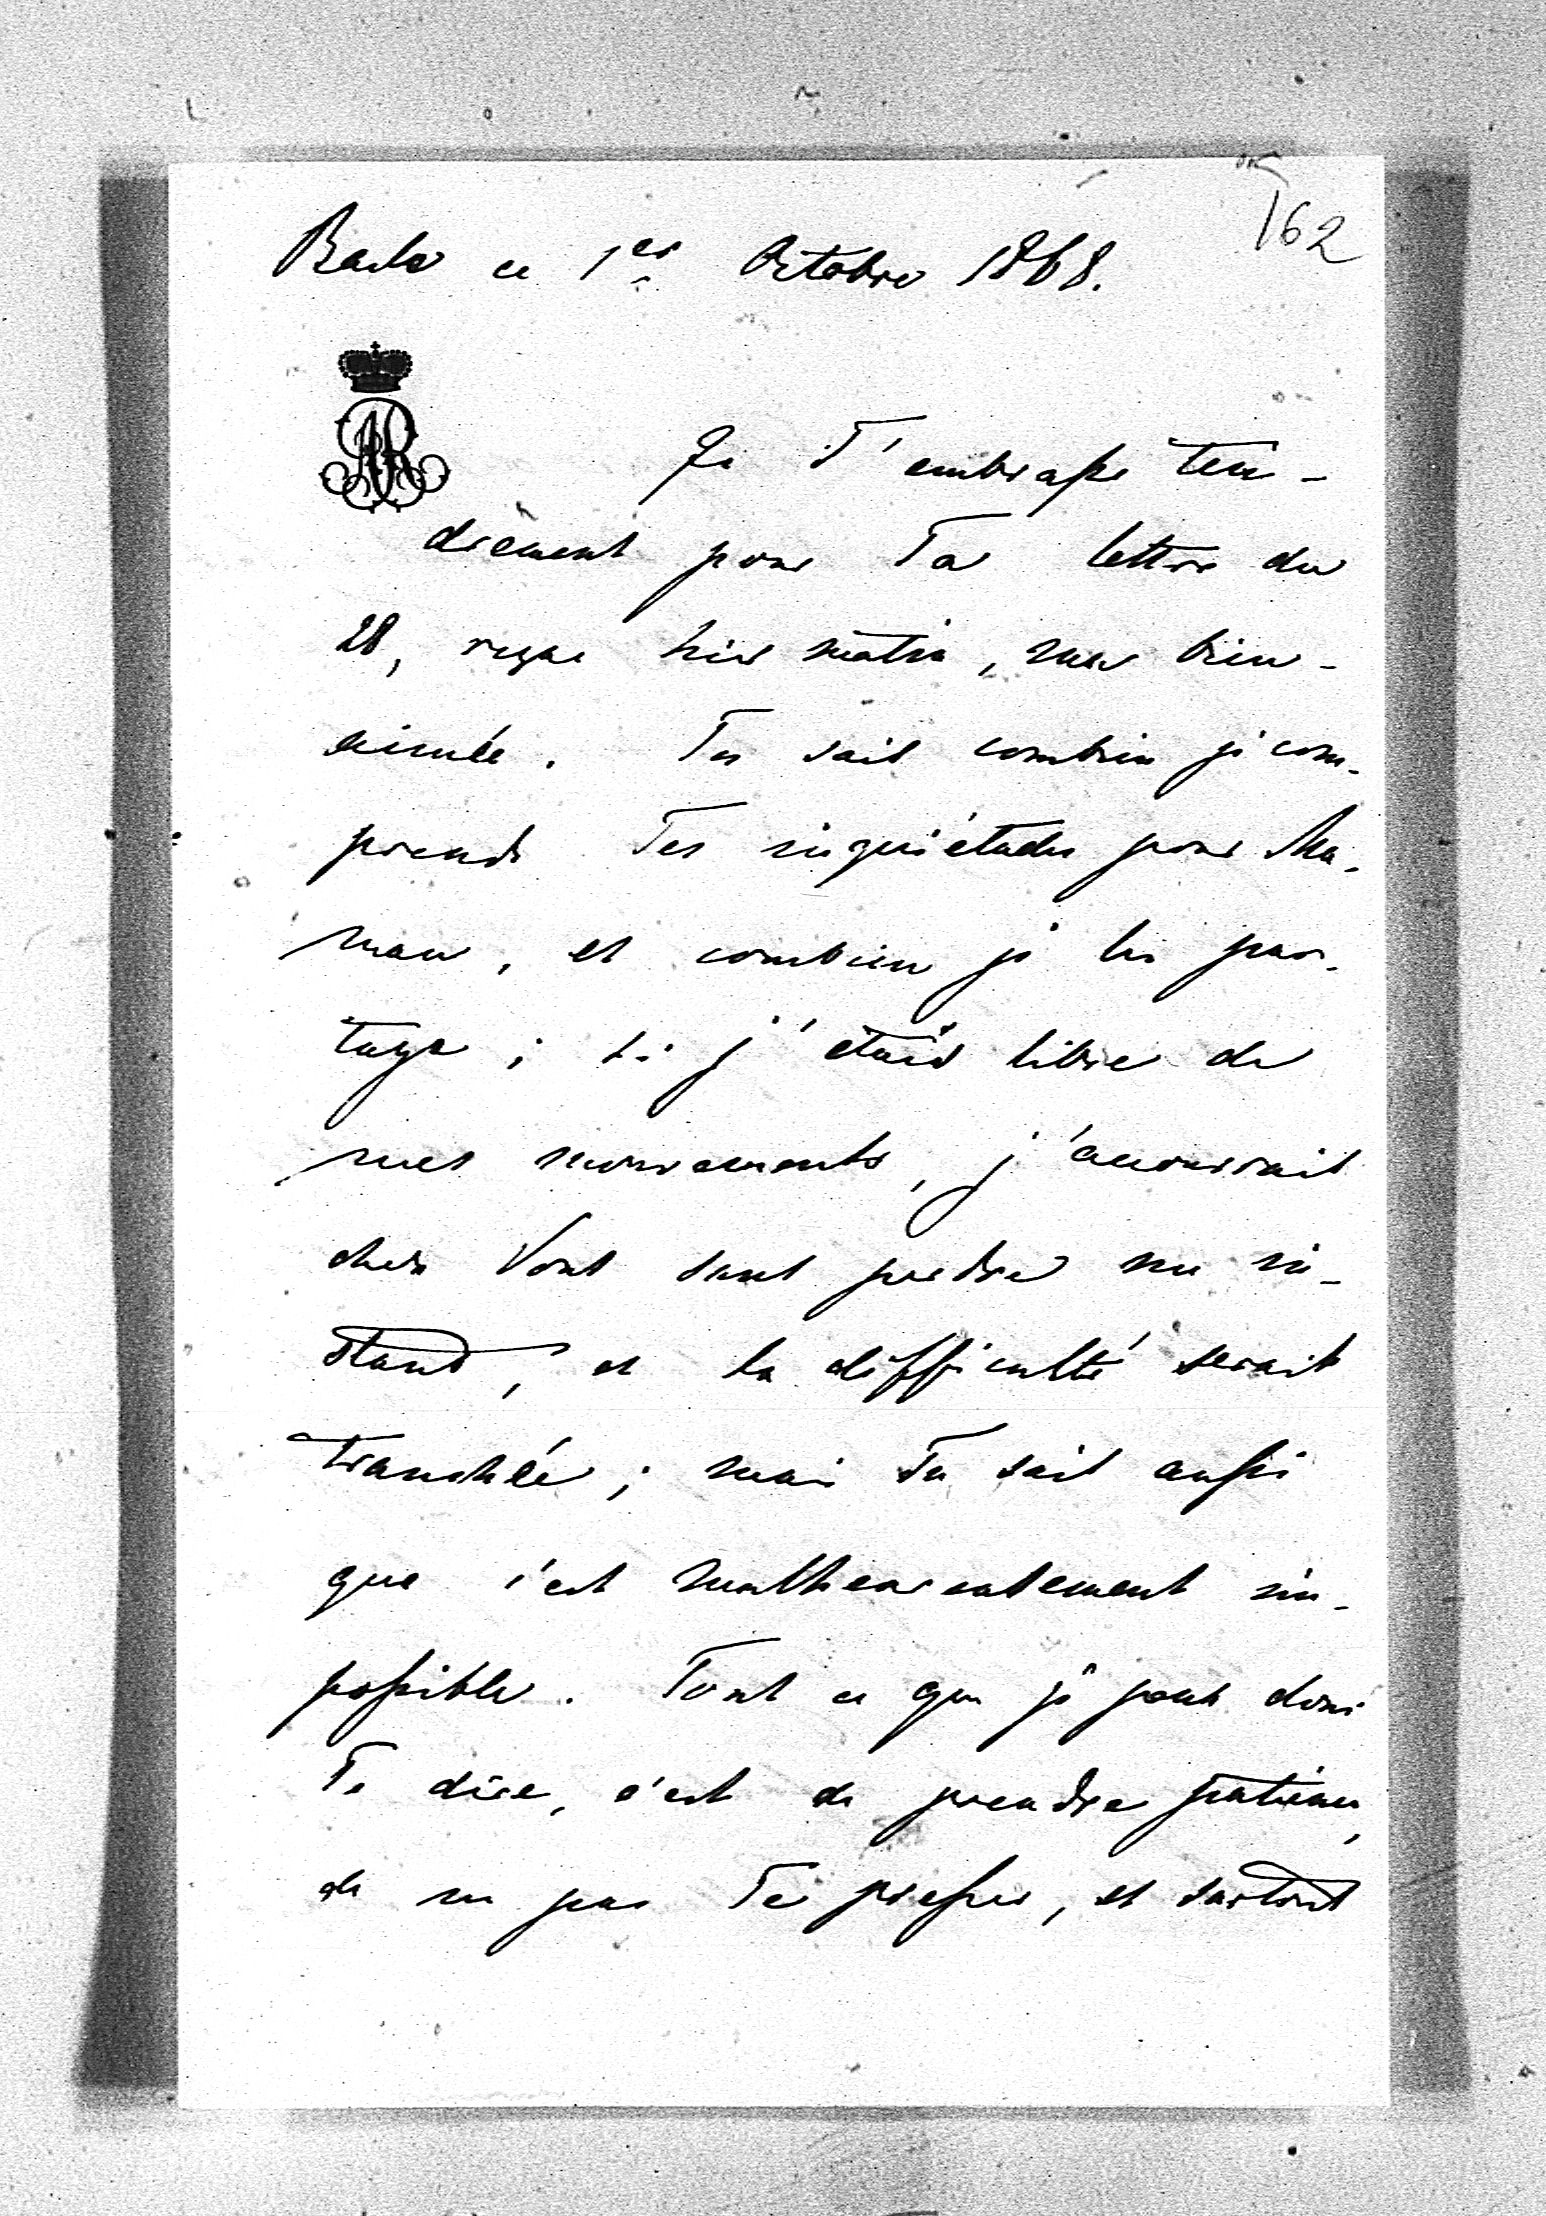 162
ce 1er Octobre 1868.
Je T'embrasse ten-
drement pour Ta lettre du
28, reçue hier matin, ma bien-
aimée. Tu sait combien je com-
prends Tes inquiétudes pour Ma-
man, et combien je les par-
tage; si j'étais libre de
mes mouvements, j'accourrait
chez Vous sans perdre un in-
stant, et la difficulté serait
tranchée; mais Tu sait aussi
que c'est malheureusement im-
possible. Tout ce que je peux donc
Te dire, c'est de prendre patience,
de ne pas Te presser, et surtout